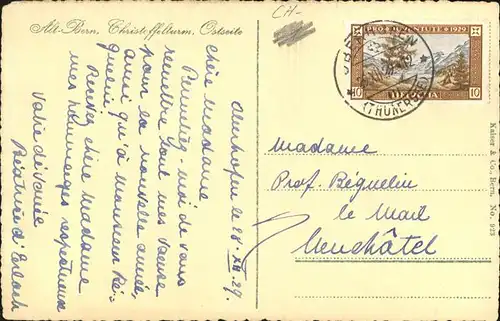 Alt-Bern, Christoffelturm, Ostseite
CH-
PRO JUVENTUTE 1929
10 HELVETIA 10
(THUNERSEE)
Oberhofen le 28. XII. 29.
Chère Madame
Permettez-moi de vous
remettre tous mes vœux
pour la nouvelle année,
ainsi qu'à Monsieur Bé-
guelin.
Recevez chère Madame
mes hommages respectueux
Votre dévouée
Béatrice d'Erlach
Madame
Prof. Béguelin
le Mail
Neuchâtel
Kaiser & Co., Bern. No. 923